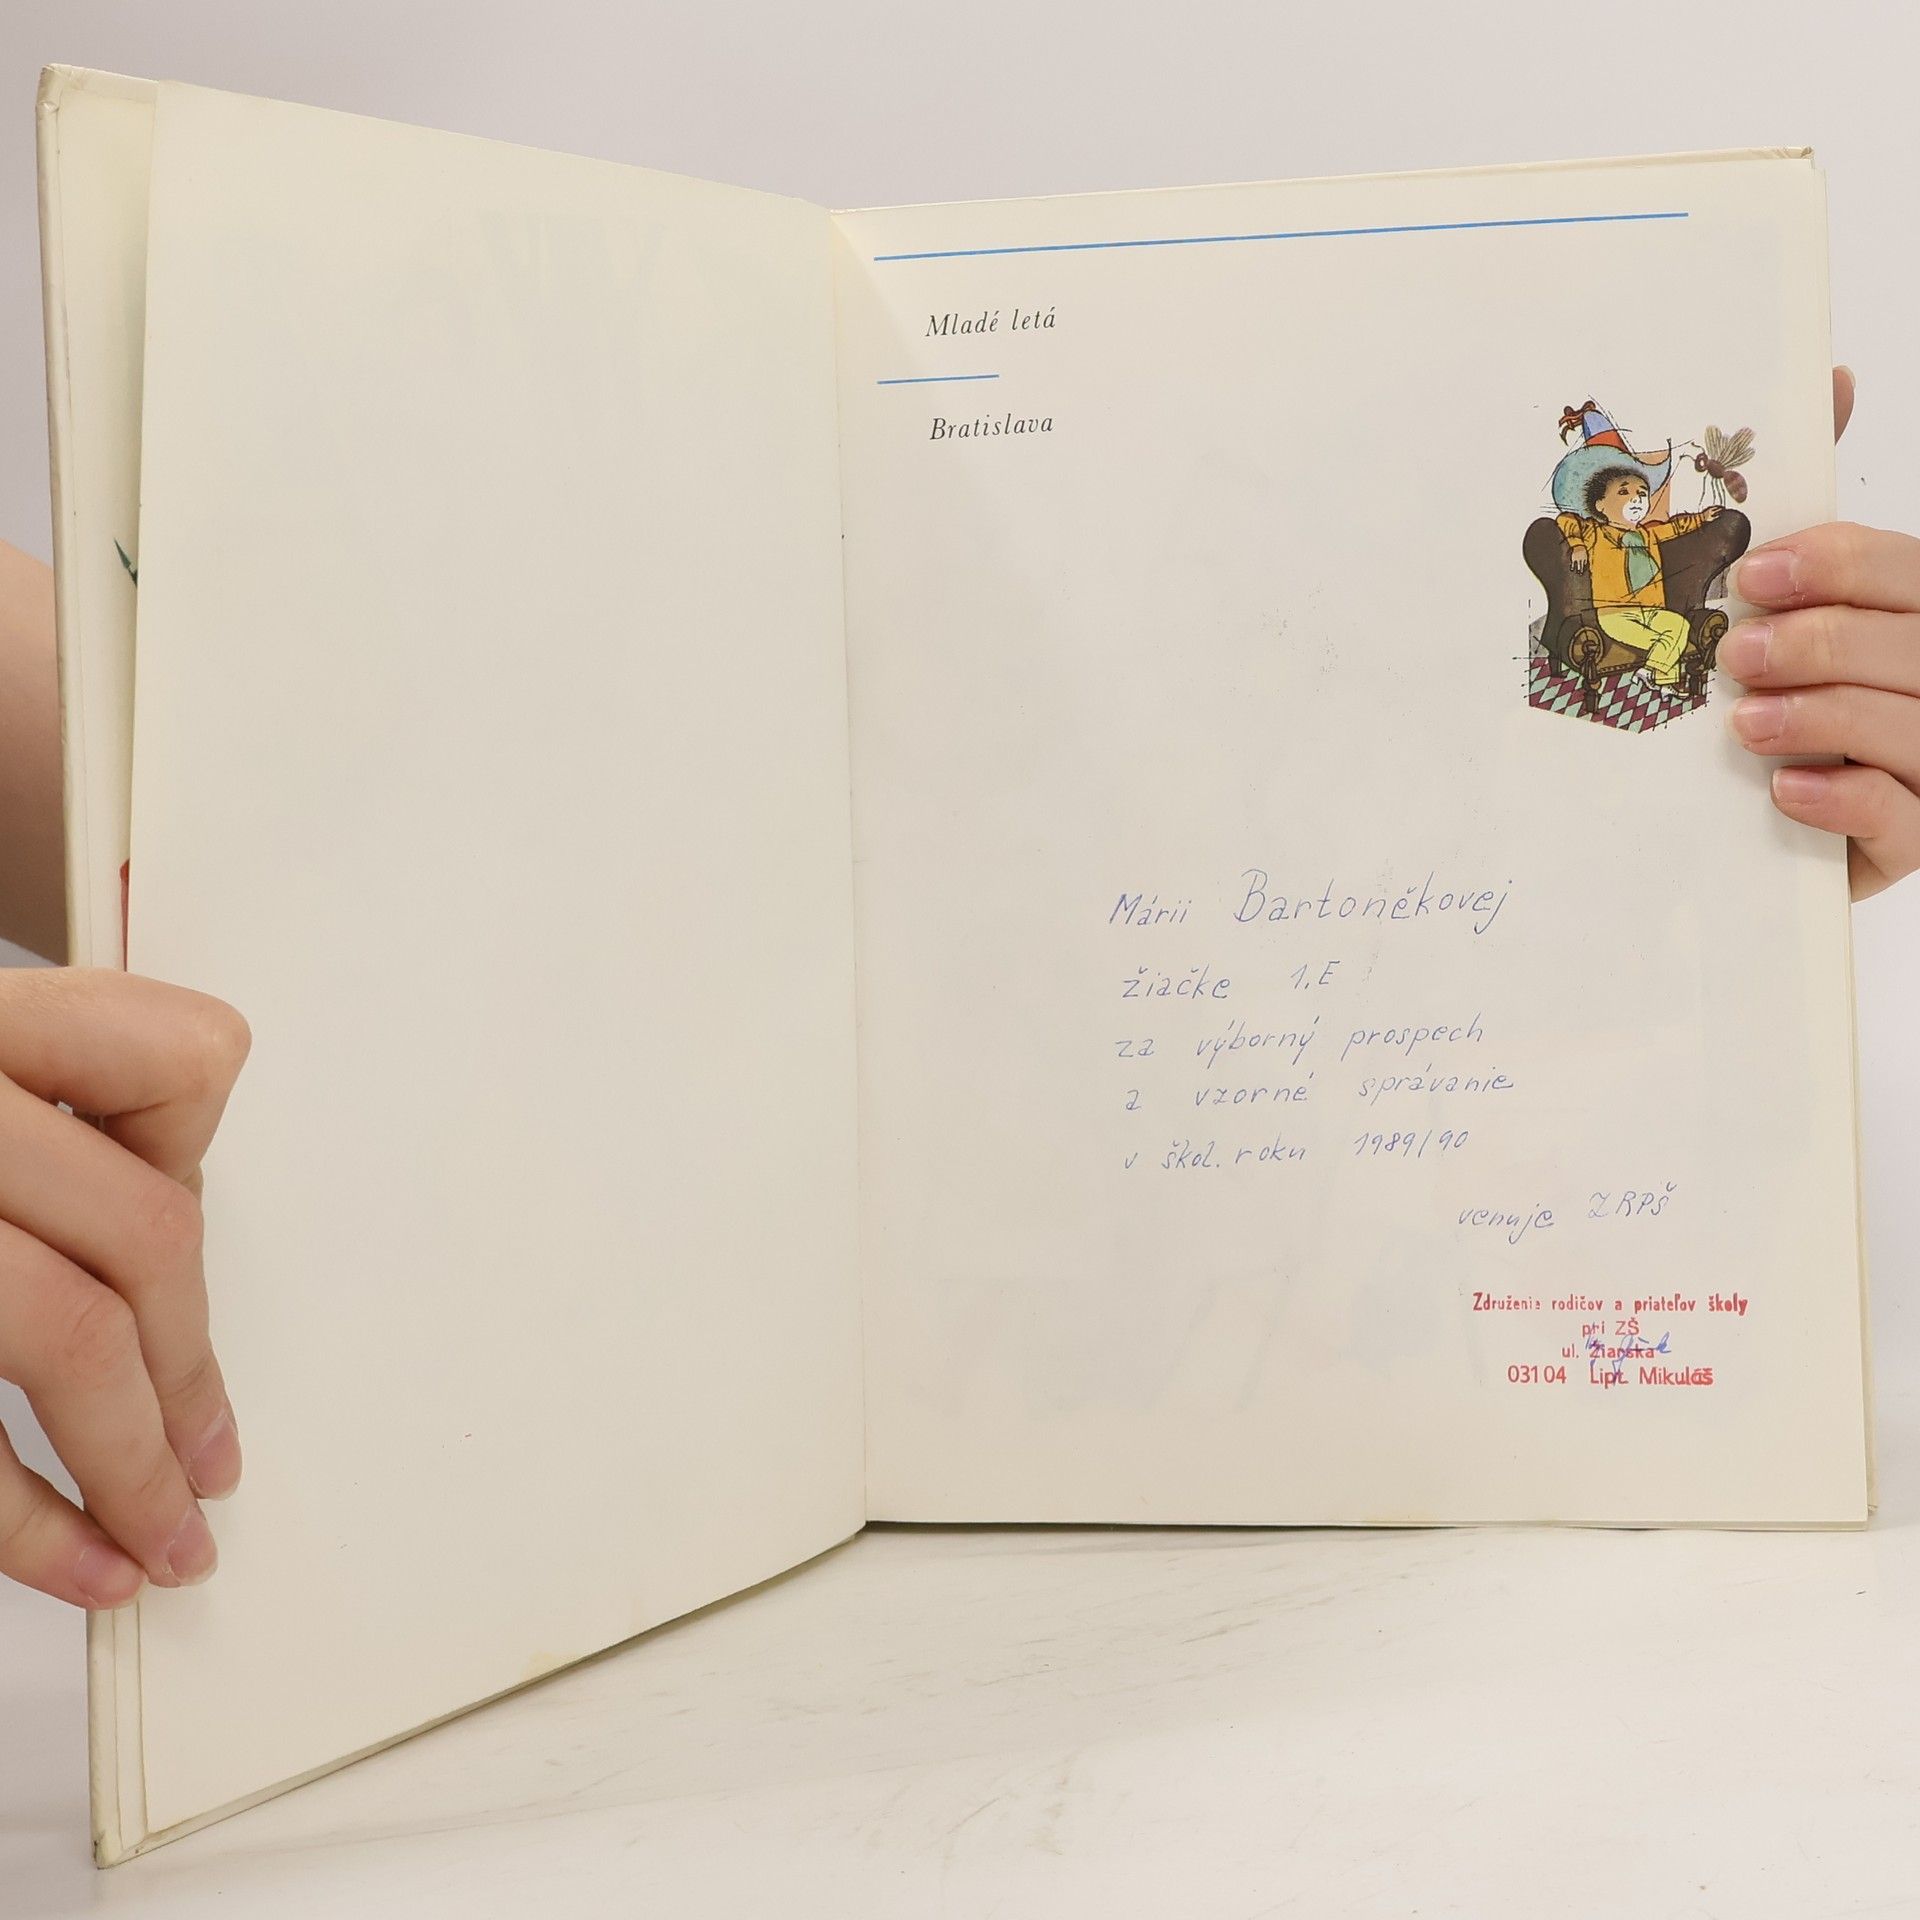 Mladé letá
Bratislava
Márii Bartoněkovej
žiačke 1.E
za výborný prospech
a vzorné správanie
v škol. roku 1989/90
venuje ZRPŠ
Združenie rodičov a priateľov školy
pri ZŠ
ul. Žiarska
031 04 Lipt. Mikuláš